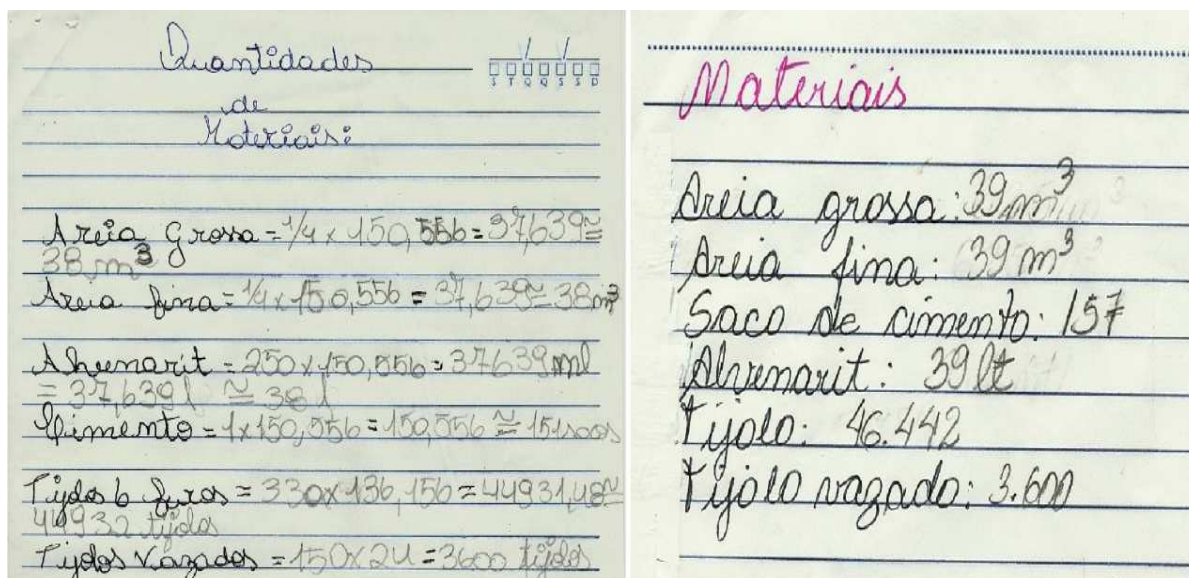 Quantidades
de
Materiais:
S T Q Q S S D
Areia Grossa = 1/4 x 150,556 = 37,639 ≅
38 m³
Areia fina = 1/4 x 150,556 = 37,639 ≅ 38 m³
Alvenarit = 250 x 150,556 = 37639 ml
= 37,639 l ≅ 38 l
Cimento = 1 x 150,556 = 150,556 ≅ 151 sacos
Tijolos 6 furos = 330 x 136,156 = 44931,48 ≅
44932 tijolos
Tijolos Vazados = 150 x 24 = 3600 tijolos
Materiais
Areia grossa: 39 m³
Areia fina: 39 m³
Saco de cimento: 157
Alvenarit: 39 lt
Tijolo: 46.442
Tijolo vazado: 3.600